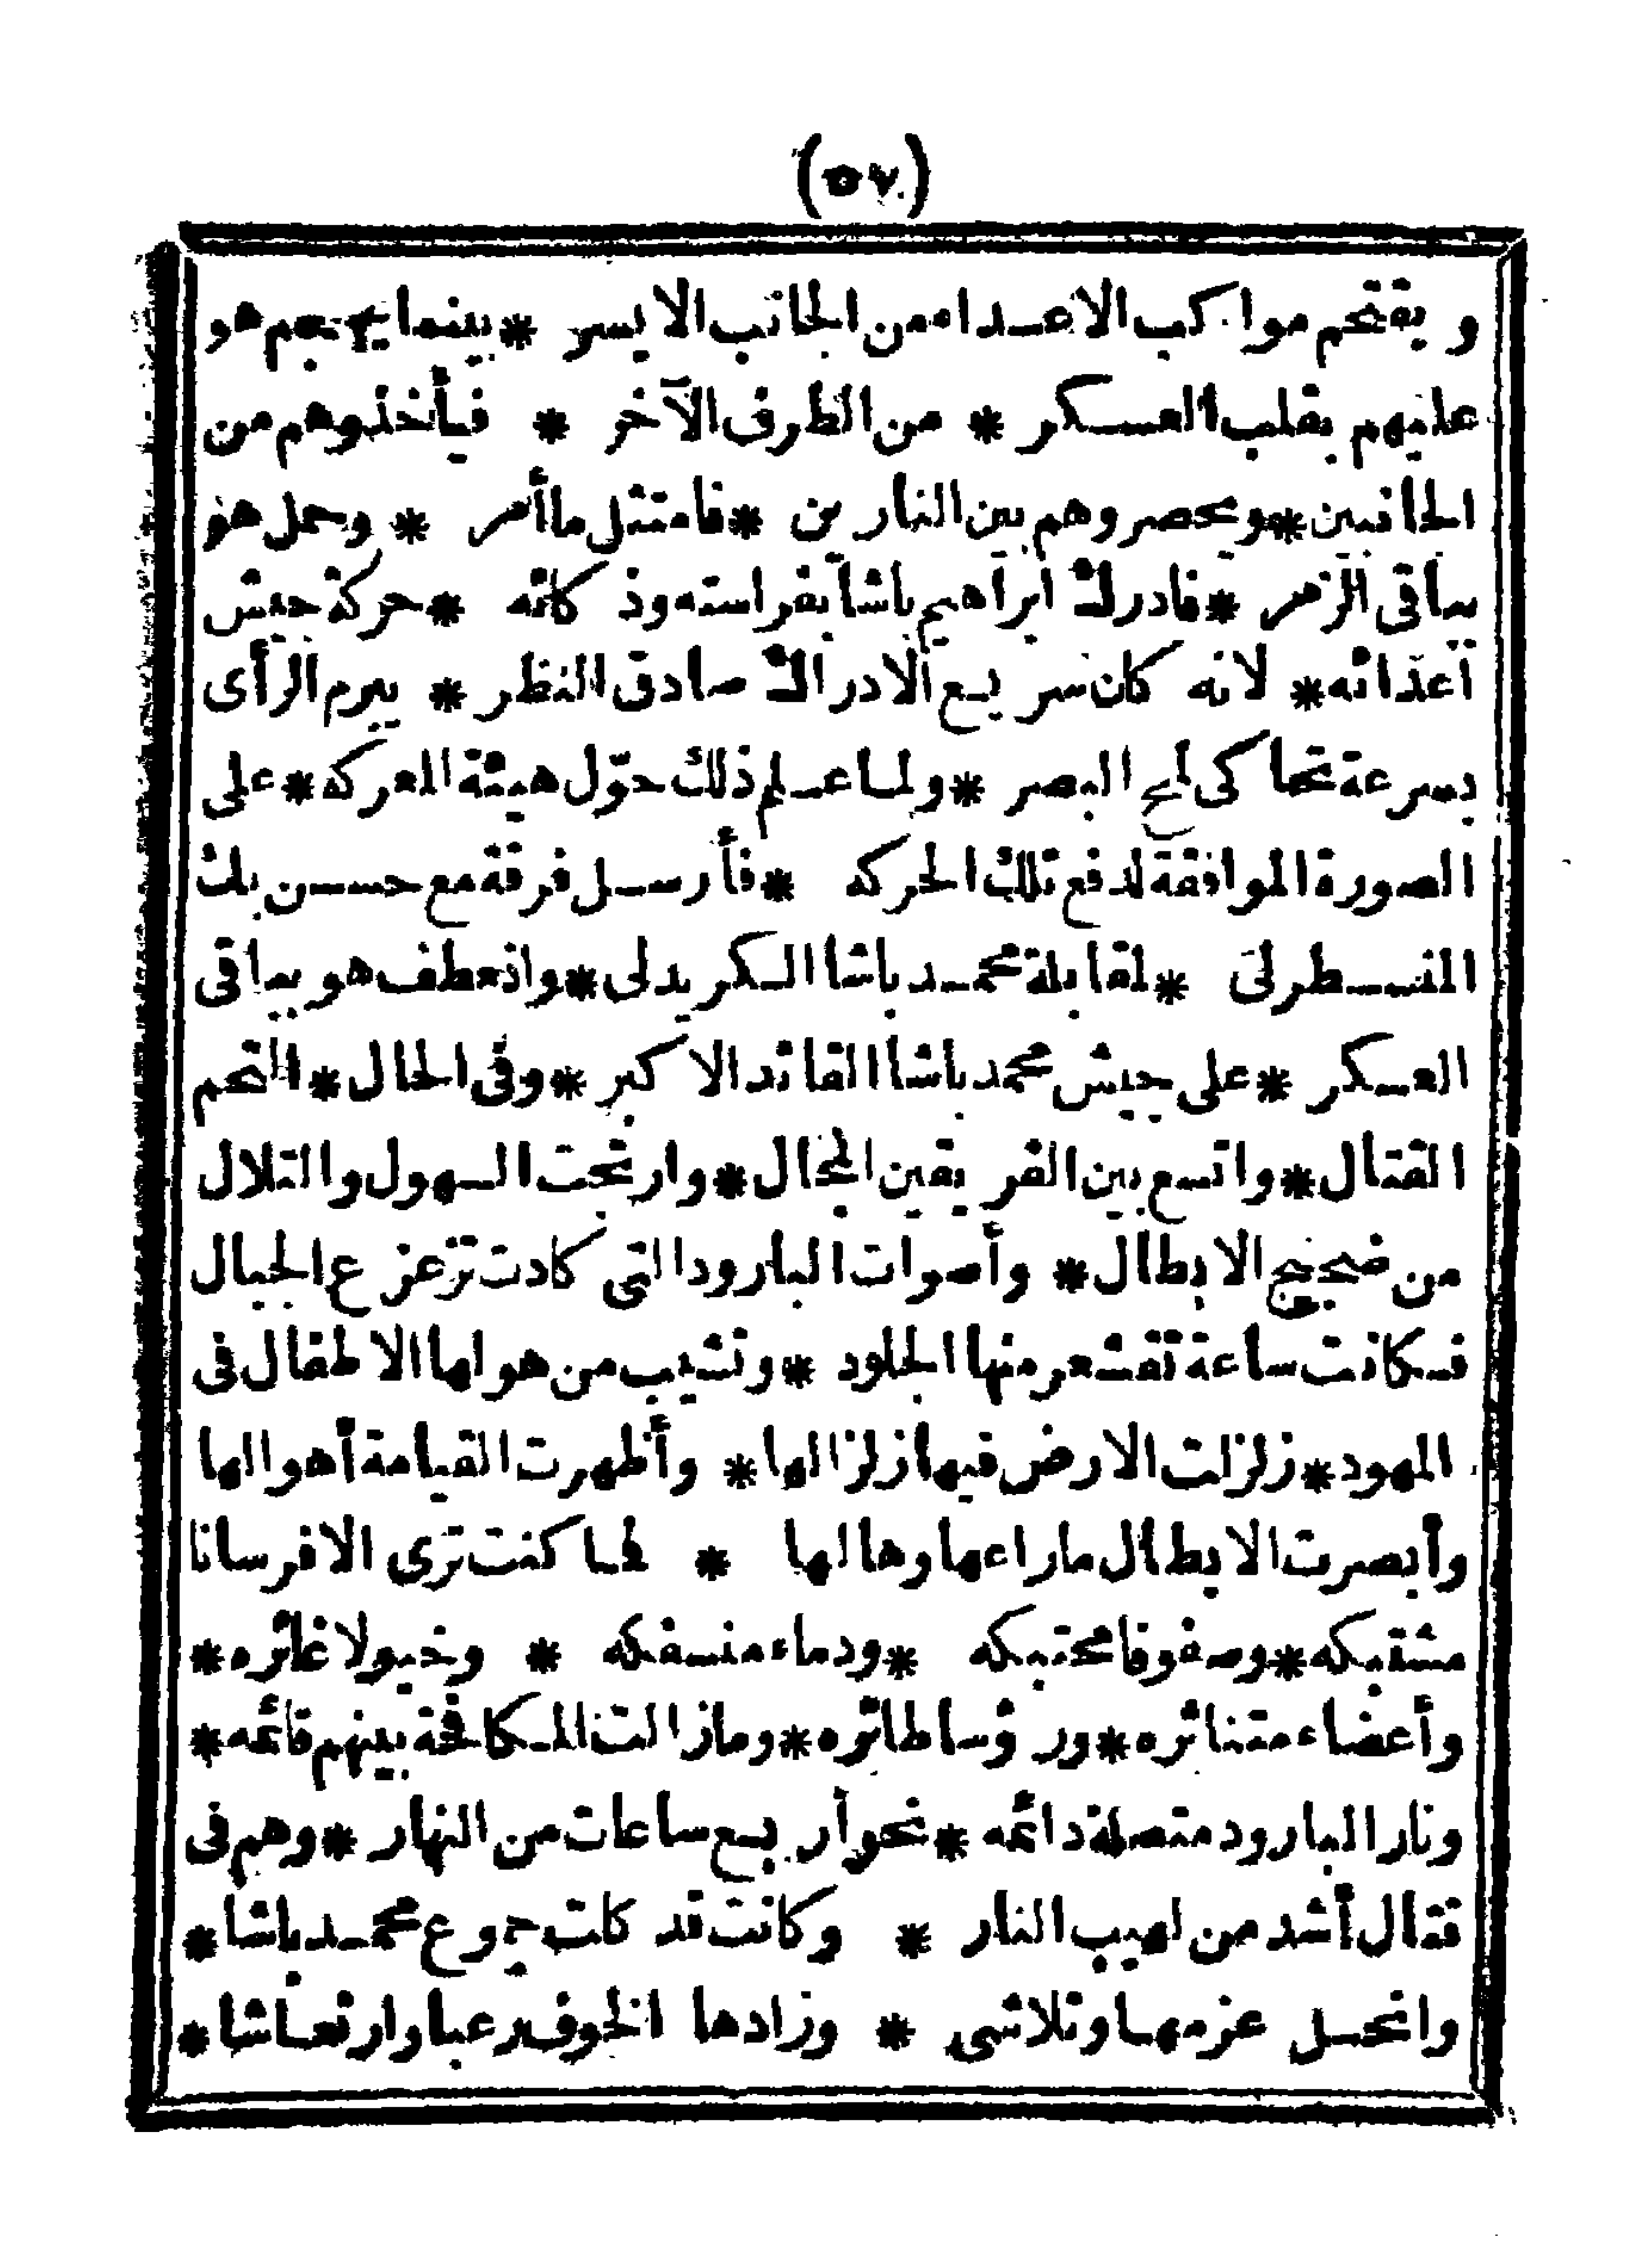 (٥٧)
ويقتحم مواكب الاعداء من الجانب الايسر * بينما يهجم هو
عليهم بقلب العسكر * من الطرف الآخر * فيأخذوهم من
الجانبين * ويحصروهم بين النارين * فامتثل ما أمر * وحمل هو
بباقى الزمر * فادرك ابراهيم باشا بفراسته وذكائه * حركة جيش
أعدائه * لانه كان سريع الادراك صادق النظر * يبرم الرأى
بسرعة تحاكى لمح البصر * ولما علم ذلك حوّل هيئة المعركه * على
الصورة الموافقة لدفع تلك الحركه * فأرسل فرقة مع حسن بك
المنسطرلى * لمقابلة محمد باشا الكريدلى * وانعطف هو بباقى
العسكر * على جيش محمد باشا القائد الاكبر * وفى الحال * التحم
القتال * واتسع بين الفريقين المجال * وارتجت السهول والتلال
من ضجيج الابطال * وأصوات البارود التى كادت تزعزع الجبال
فكانت ساعة تقشعر منها الجلود * وتشيب من هولها الاطفال فى
المهود * زلزلت الارض فيها زلزالها * وأظهرت القيامة أهوالها
وأبصرت الابطال ما راعها وهالها * فما كنت ترى الا فرسانا
مشتبكه * وصفوفا محتبكه * ودماء منسفكه * وخيولا غائره *
وأعضاء متناثره * ورؤسا طائره * وما زالت المكافحة بينهم قائمه *
ونار البارود متصلة دائمه * نحو أربع ساعات من النهار * وهم فى
قتال أشد من لهيب النار * وكانت قد كلت جموع محمد باشا *
وانحل عزمها وتلاشى * وزادها الخوف رعبا وارتعاشا *